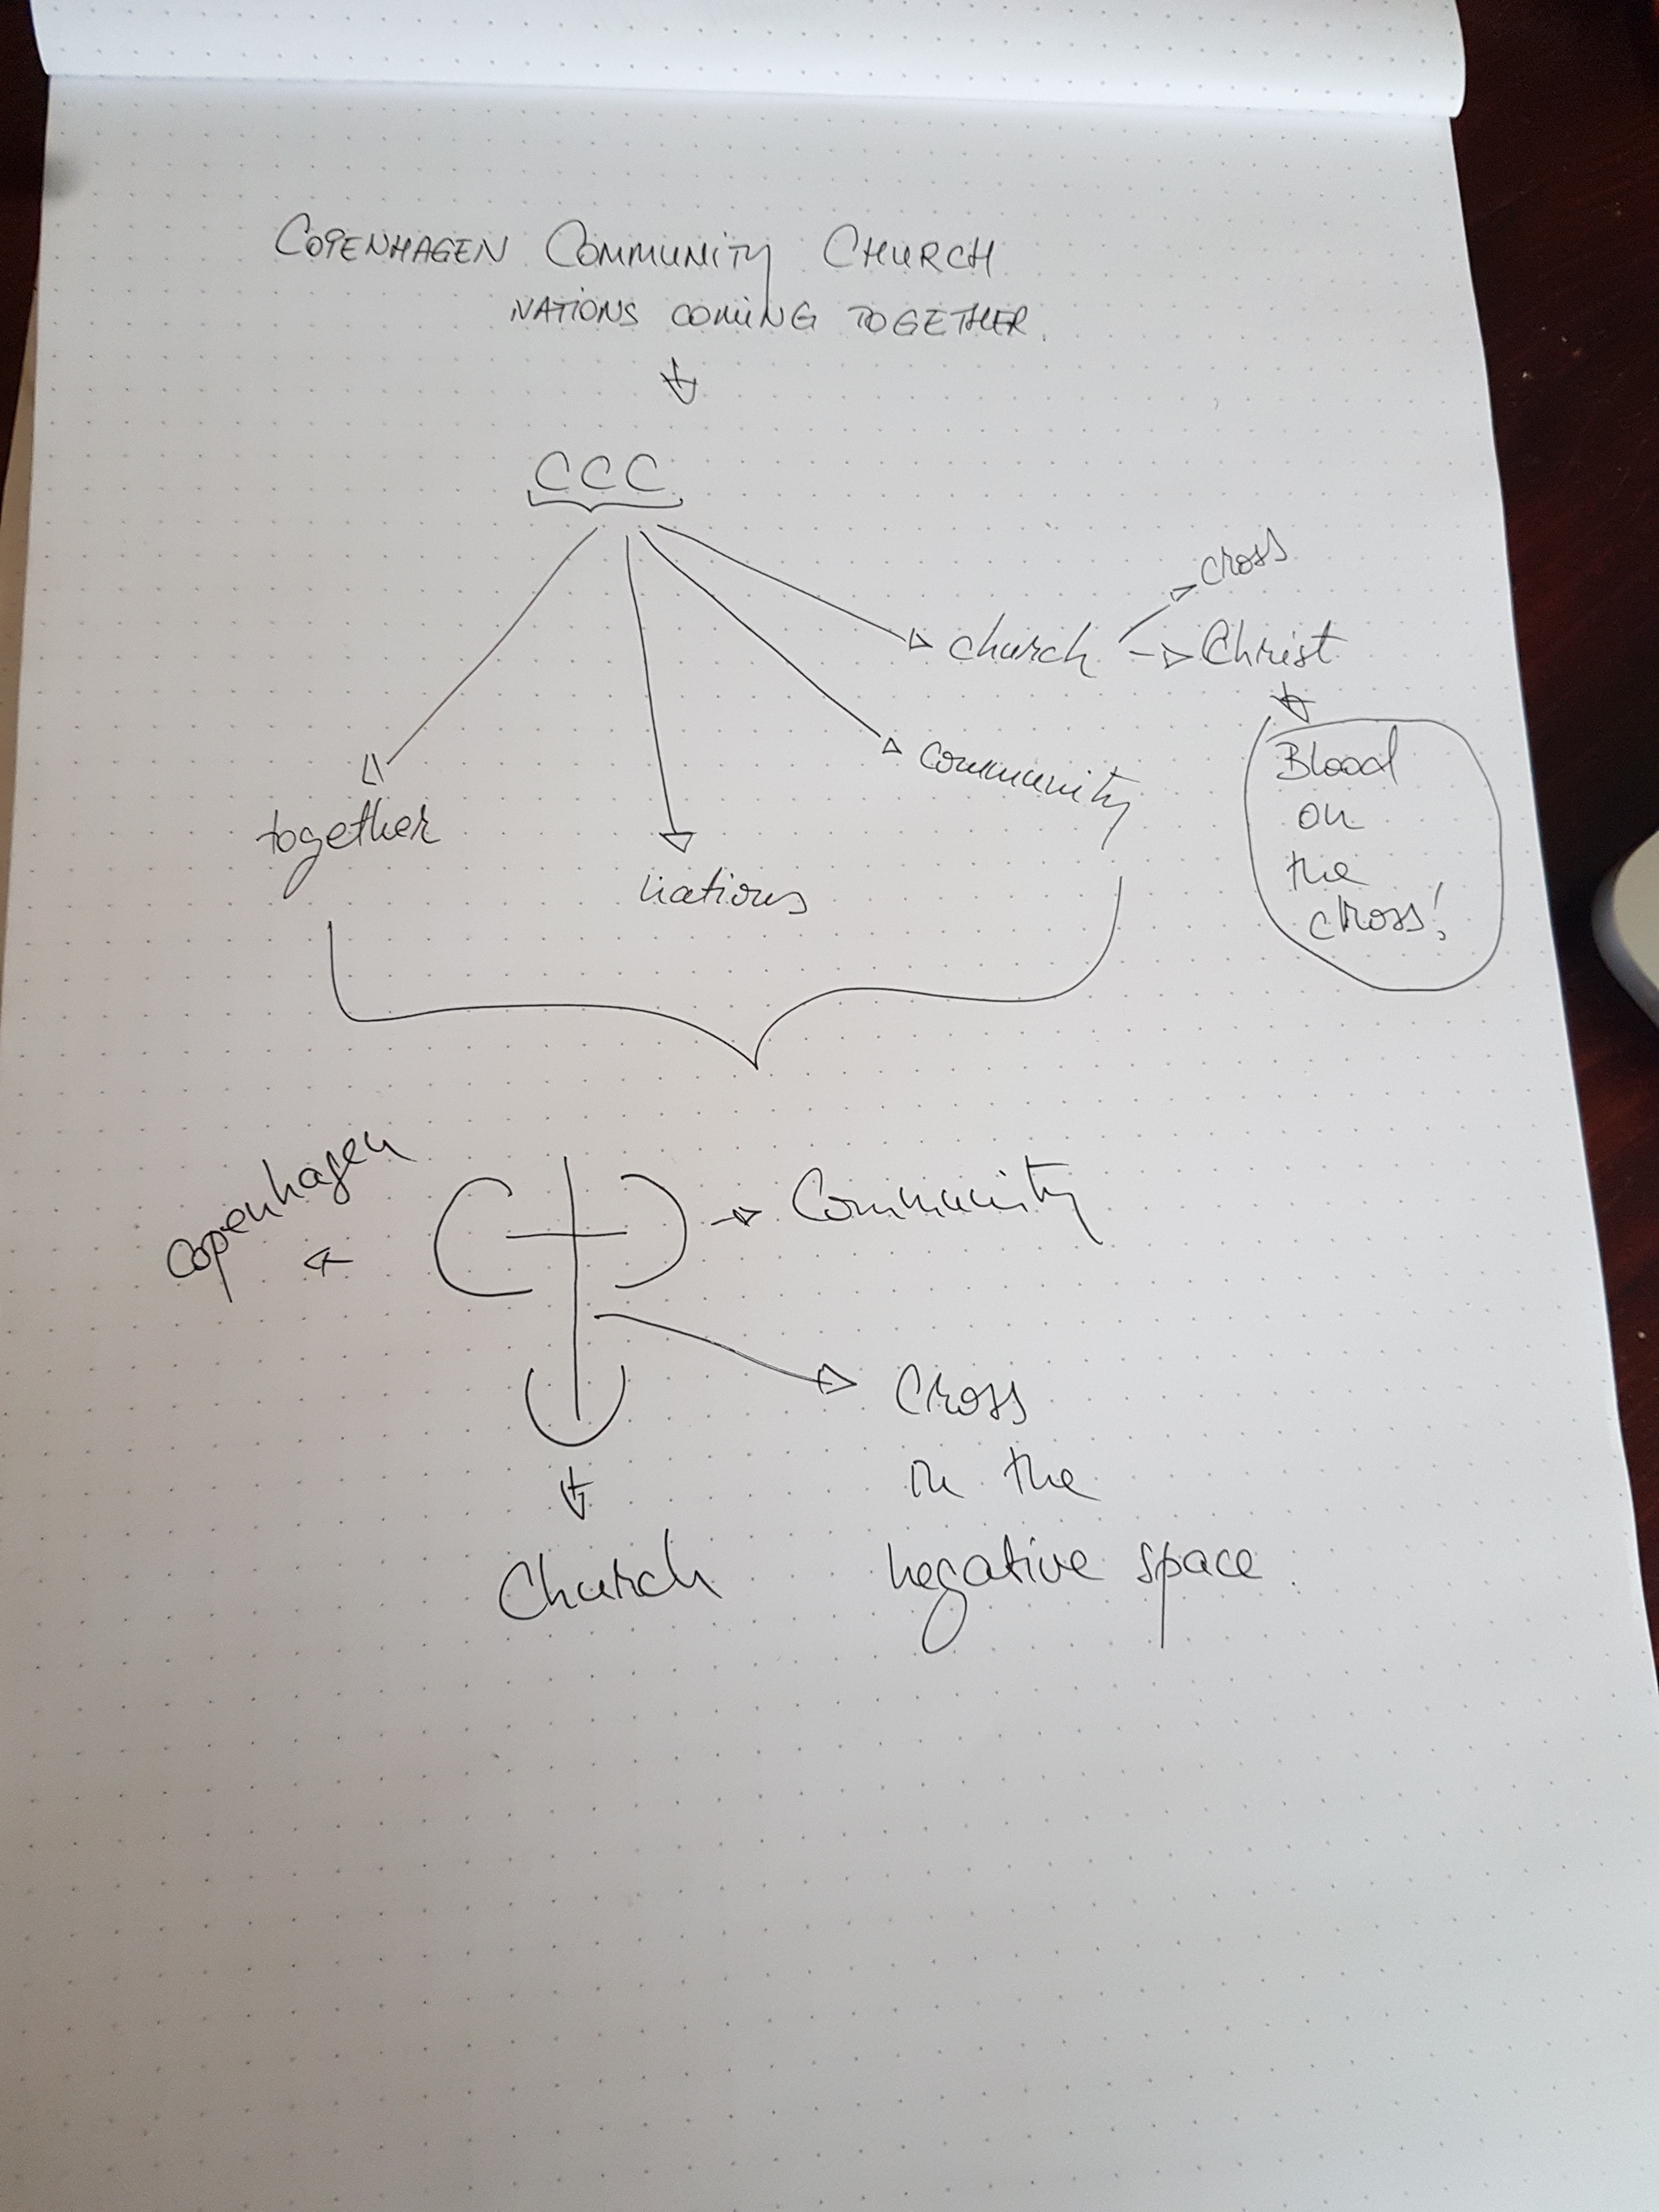 COPENHAGEN COMMUNITY CHURCH
NATIONS COMING TOGETHER.
CCC
cross
church
Christ
community
together
nations
Blood
on
the
cross!
Copenhagen
Community
Cross
in the
negative space.
Church